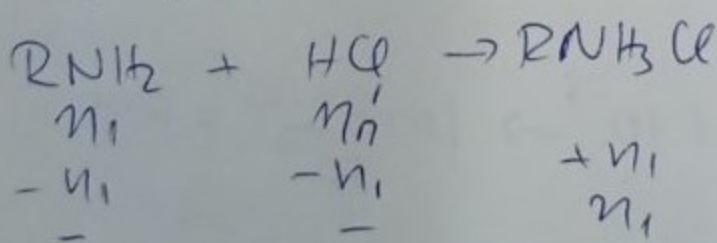 RNH₂ + HCl → RNH₃Cl
n₁ n₁
- n₁ - n₁ + n₁
- - n₁